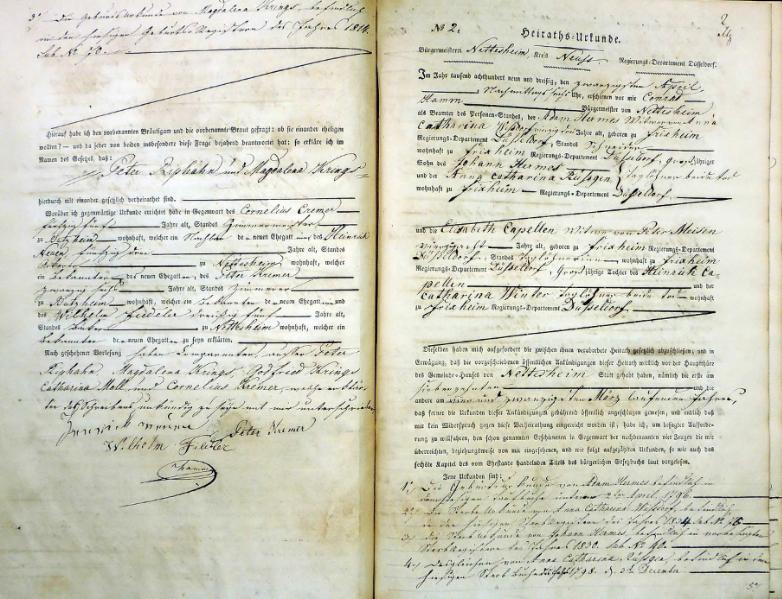 3. Die Geburts Urkunde von Magdalena Krings, befindlich
in den hiesigen Geburts Registern des Jahres 1814.
Hierauf habe ich den vorbenannten Bräutigam und die vorbenannte Braut gefragt: ob sie einander ehelichen
wollen? — und da jeder von beiden insbesondere diese Frage bejahend beantwortet hat: so erkläre ich im
Namen des Gesetzes, daß:
Peter und Magdalena Krings
hierdurch mit einander gesetzlich verheirathet sind.
Worüber ich gegenwärtige Urkunde errichtet habe in Gegenwart des Cornelius Cremer
Jahre alt, Standes
zu wohnhaft, welcher ein Nachbar de neuen Ehegatten des Heinrich
Jahre alt, Standes
zu Nettesheim wohnhaft, welcher
ein Bekannter de neuen Ehegatten, des Peter Kremer
zwanzig sechs Jahre alt, Standes
zu Butzheim wohnhaft, welcher ein Bekannter de neuen Ehegatten und
des Wilhelm Fiedeler dreißig fünf Jahre alt,
Standes zu Nettesheim wohnhaft, welcher ein
Bekannter de neuen Ehegatten zu seyn erklärten.
Nach geschehener Vorlesung haben außer Peter
Magdalena Krings, Godfried Krings
Catharina Moll und Cornelius Kremer, welche erklär-
ten Schreibens unkundig zu seyn mit mir unterschrieben
Peter Kremer
Wilhelm Fiedler
Hamm
No. 2.
Heiraths-Urkunde.
Bürgermeisterei Nettesheim, Kreis Neuss Regierungs-Departement Düsseldorf.
Im Jahr tausend achthundert neun und dreißig, den zwanzigsten April
Nachmittags sechs Uhr, erschienen vor mir Conrad
Hamm Bürgermeister von Nettesheim
als Beamten des Personen-Standes, der Adam Hermes Witwer von Anna
Catharina Jahre alt, geboren zu Frixheim
Regierungs-Departement Düsseldorf, Standes
wohnhaft zu Frixheim Regierungs-Departement Düsseldorf, Großjähriger
Sohn des Johann Hermes
und der Anna Catharina Rüssgen Taglöhner beide
wohnhaft zu Frixheim Regierungs-Departement Düsseldorf.
und die Elisabeth Capellen Witwe von Peter Meisen
Jahre alt, geboren zu Frixheim Regierungs-Departement
Düsseldorf, Standes Taglöhnerin wohnhaft zu Frixheim
Regierungs-Departement Düsseldorf, Großjährige Tochter des Heinrich Ca-
pellen und der
Catharina Winter Taglöhner beide wohnhaft
zu Frixheim Regierungs-Departement Düsseldorf.
Dieselben haben mich aufgefordert die zwischen ihnen verabredete Heirath gesetzlich abzuschließen; und in
Erwägung, daß die vorgeschriebenen öffentlichen Ankündigungen dieser Heirath wirklich vor der Hauptthüre
des Gemeinde-Hauses von Nettesheim Statt gehabt haben, nämlich die erste am
siebenzehnten und die
andere am vier und zwanzigsten März laufenden Jahres,
daß ferner die Urkunden dieser Ankündigungen gebührend öffentlich angeschlagen gewesen; und endlich daß
mir kein Widerspruch gegen diese Verheirathung eingereicht worden ist; habe ich, um besagter Aufforde-
rung zu willfahren, den schon genannten Geschlossenen in Gegenwart der nachbenannten vier Zeugen die mir
überreichten, beziehungsweise von mir eingesehenen, und wie folgt aufgezählten Urkunden, so wie auch das
sechste Kapitel des vom Ehestande handelnden Titels des bürgerlichen Gesetzbuchs laut vorgelesen.
Jene Urkunden sind:
1., Die Geburts Urkunde von Adam Hermes befindlich
2ten April 1796.
2., Die Sterbe Urkunde von Anna Catharina befindlich
in den hiesigen Sterberegistern des Jahres 1834 sub No. 16
3., die Sterbe Urkunde von Johann Hermes, befindlich in vorbesagten
Sterberegistern des Jahres 1830. sub No. 40.
4., Desgleichen von Anna Catharina Rüssgen, befindlich in den
hiesigen Sterbbuche 1798. d. 2. Decembr